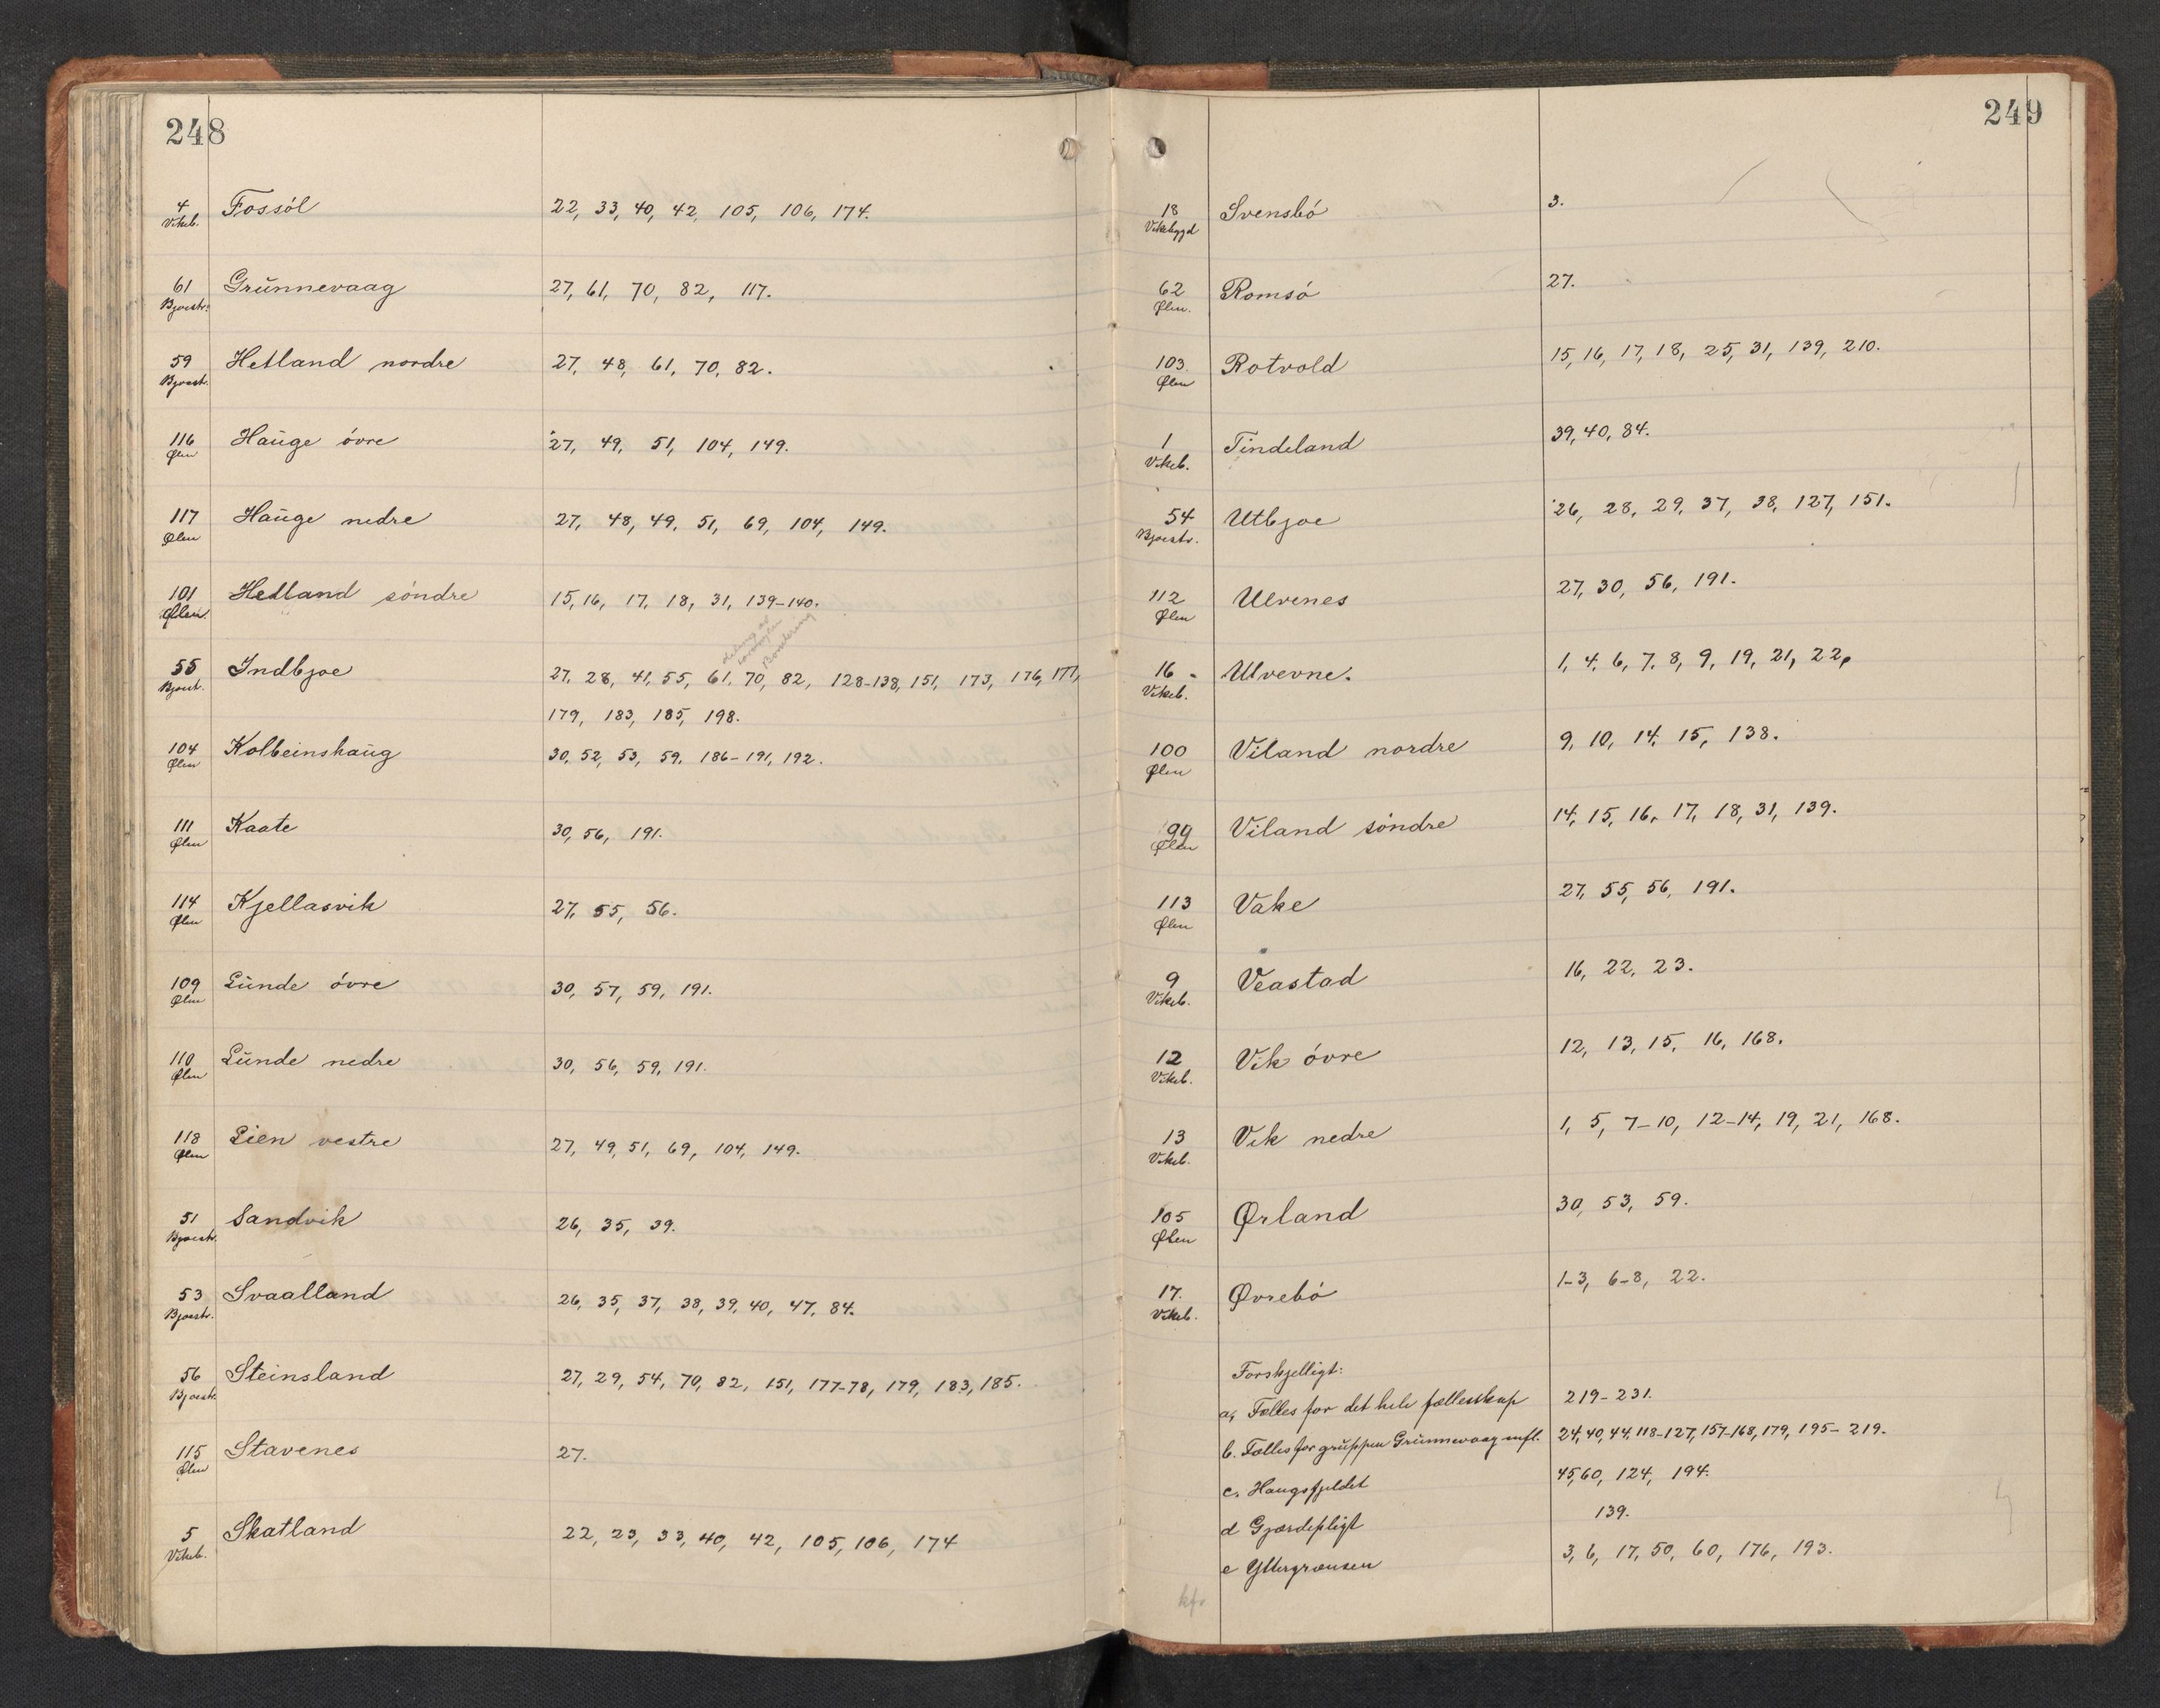 248
4 Fossöl 22, 33, 40, 42, 105, 106, 174.
Vikeb.
61 Grŭnnevaag 27, 61, 70, 82, 117.
Bjoestr.
59 Hetland nordre 27, 48, 61, 70, 82.
Bjoestr.
116 Haŭge óvre 27, 49, 51, 104, 149.
Ølen
117 Haŭge nedre 27, 48, 49, 51, 69, 104, 149.
Ølen
101 Hetland söndre 15, 16, 17, 18, 31, 139-140.
Ølen
55 Indbjoe 27, 28, 41, 55, 61, 70, 82, 128-138, 151, 173, 176, 177,
Bjoestr.
179, 183, 185, 198.
104 Kolbeinshaŭg 30, 52, 53, 59, 186-191, 192.
Ølen
111 Kaate 30, 56, 191.
Ølen
114 Kjellasvik 27, 55, 56.
Ølen
109 Lŭnde óvre 30, 57, 59, 191.
Ølen
110 Lŭnde nedre 30, 56, 59, 191.
Ølen
118 Lien vestre 27, 49, 51, 69, 104, 149.
Ølen
51 Sandvik 26, 35, 39.
Bjoestr.
53 Svaalland 26, 35, 37, 38, 39, 40, 47, 84.
Bjoestr.
56 Steinsland 27, 29, 54, 70, 82, 151, 177-78, 179, 183, 185.
Bjoestr.
115 Stavenes 27.
Ølen
5 Skatland 22, 23, 33, 40, 42, 105, 106, 174
Vikeb.
249
18 Svensbó 3.
Vikebygd
62 Romsó 27.
Ølen.
103. Rotvold 15, 16, 17, 18, 25, 31, 139, 210.
Ølen
1 Tindeland 39, 40, 84.
Vikeb.
54 Utbjoe 26, 28, 29, 37, 38, 127, 151.
Bjoestr.
112 Ulvenes 27, 30, 56, 191.
Ølen
16 Ulvevne. 1, 4, 6, 7, 8, 9, 19, 21, 22,
Vikeb.
100 Viland nordre 9, 10, 14, 15, 138.
Ølen
99 Viland söndre 14, 15, 16, 17, 18, 31, 139.
Ølen
113 Vake 27, 55, 56, 191.
Ølen
9 Veastad 16, 22, 23.
Vikeb.
12 Vik óvre 12, 13, 15, 16, 168.
Vikeb.
13 Vik nedre 1, 5, 7-10, 12-14, 19, 21, 168.
Vikeb.
105 Ørland 30, 53, 59.
Ølen
17. Øvrebó 1-3, 6-8, 22.
Vikeb.
Forskjelligt:
a, Fælles for det hele fællesskap 219-231.
b. Fælles for grŭppen Grŭnnevaag mfl. 24, 40, 44, 118-127, 157-168, 179, 195-219.
c. Haugsfjeldet 45, 60, 124, 194.
d Gjærdepligt 139.
e Yttergrænsen 3, 6, 17, 50, 60, 176, 193.
kfr